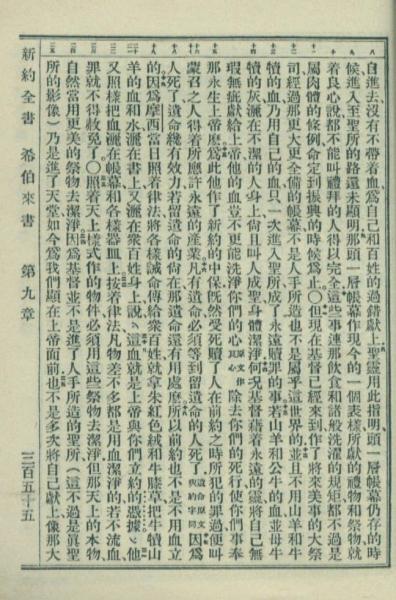 自進去、沒有不帶着血、爲自己和百姓的過錯獻上、聖靈用此指明、頭一層帳幕仍存的時
候、進入至聖所的路還未顯明、那頭一層帳幕作現今的一個表樣、所獻的禮物和祭物、就
着良心說、都不能叫禮拜的人得以完全、這些事連那飲食和諸般洗濯的規矩、都不過是
屬肉體的條例、命定到振興的時候爲止、〇但現在基督已經來到、作了將來美事的大祭
司、經過那更大更全備的帳幕、不是人手所造、也不是屬乎這世界的、並且不用山羊和牛
犢的血、乃用自己的血、只一次進入聖所、成了永遠贖罪的事、若山羊和公牛的血、並母牛
犢的灰、灑在不潔的人身上、尙且叫人成聖、身體潔淨、何況基督藉着永遠的靈、將自己無
瑕無疵獻給上帝、他的血豈不更能洗淨你們的心、原文作良心除去你們的死行、使你們事奉
那永生上帝麽、爲此他作了新約的中保、旣然受死贖了人在前約之時所犯的罪過、便叫
蒙召之人得着所應許永遠的產業、凡有遺命、必須等到留遺命的人死了、遺命原文與約字同因爲
人死了、遺命纔有效力、若留遺命的尙在、那遺命還有用處麽、所以前約也不是不用血立
的、因爲摩西當日照着律法、將各樣誡命傳給衆百姓、就拿朱紅色絨和牛膝草、把牛犢山
羊的血和水、灑在書上、又灑在衆百姓身上、說、這血就是上帝與你們立約的憑據、他
又照樣把血灑在帳幕、和各樣器皿上、按着律法、凡物差不多都是用血潔淨的、若不流血、
罪就不得赦免了、〇照着天上樣式作的物件、必須用這些祭物去潔淨、但那天上的本物、
自然當用更美的祭物去潔淨、因爲基督並不是進了人手所造的聖所、（這不過是眞聖
所的影像）乃是進了天堂、如今爲我們顯在上帝面前、也不是多次將自己獻上、像那大
新約全書 希伯來書 第九章 三百五十五